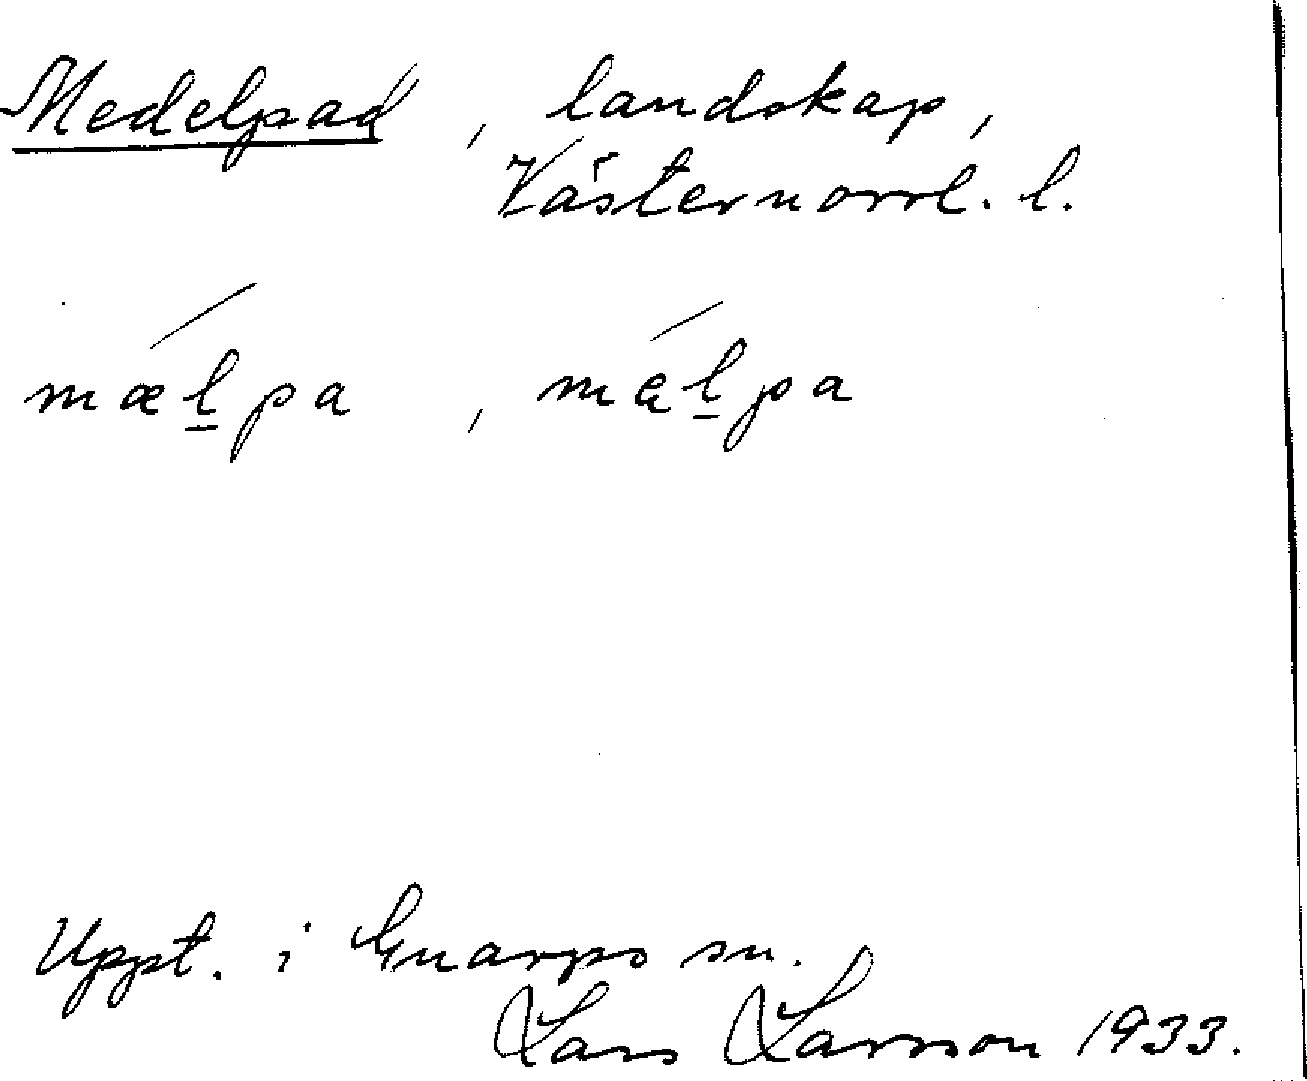 Medelpad, landskap,
Västernorrl. l.
mæl̲pa, mę́l̲pa
Uppt. i Gnarps sn.
Lars Larsson 1933.